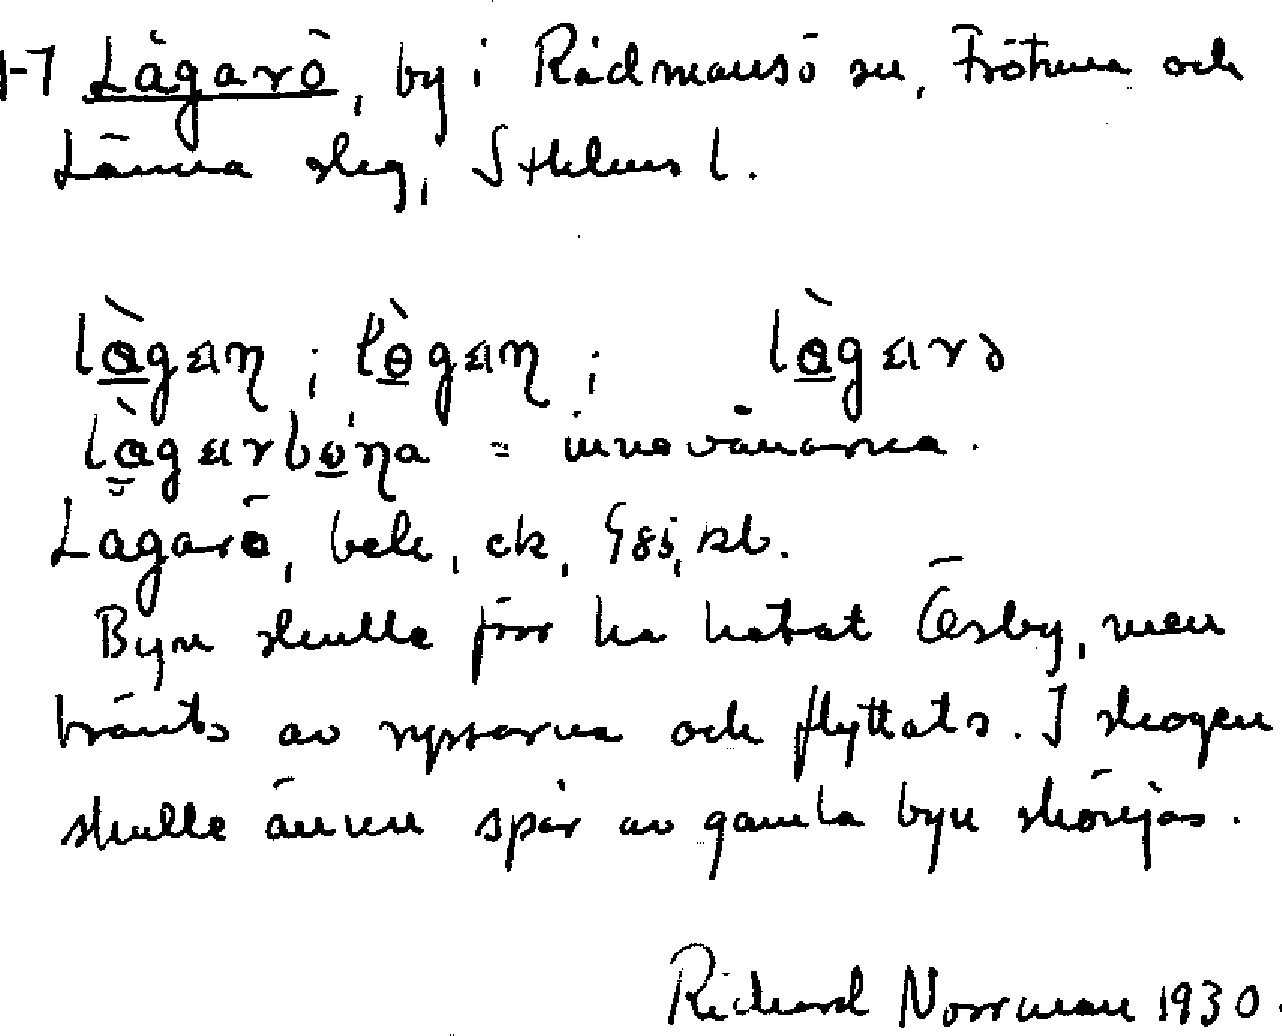 1-7 Lågarö, by i Rådmansö sn, Frötuna och
Länna skeg, Sthlms l.
lågaṇ; lògaṇ; lågarö
lågarbóna = innevånarna.
Lågarö, bek, ck, Gsi, rb.
Byn skulle förr ha hetat Åsby, men
bränts av ryssarna och flyttats. I skogen
skulle ännu spår av gamla byn skönjas.
Richard Norrman 1930.